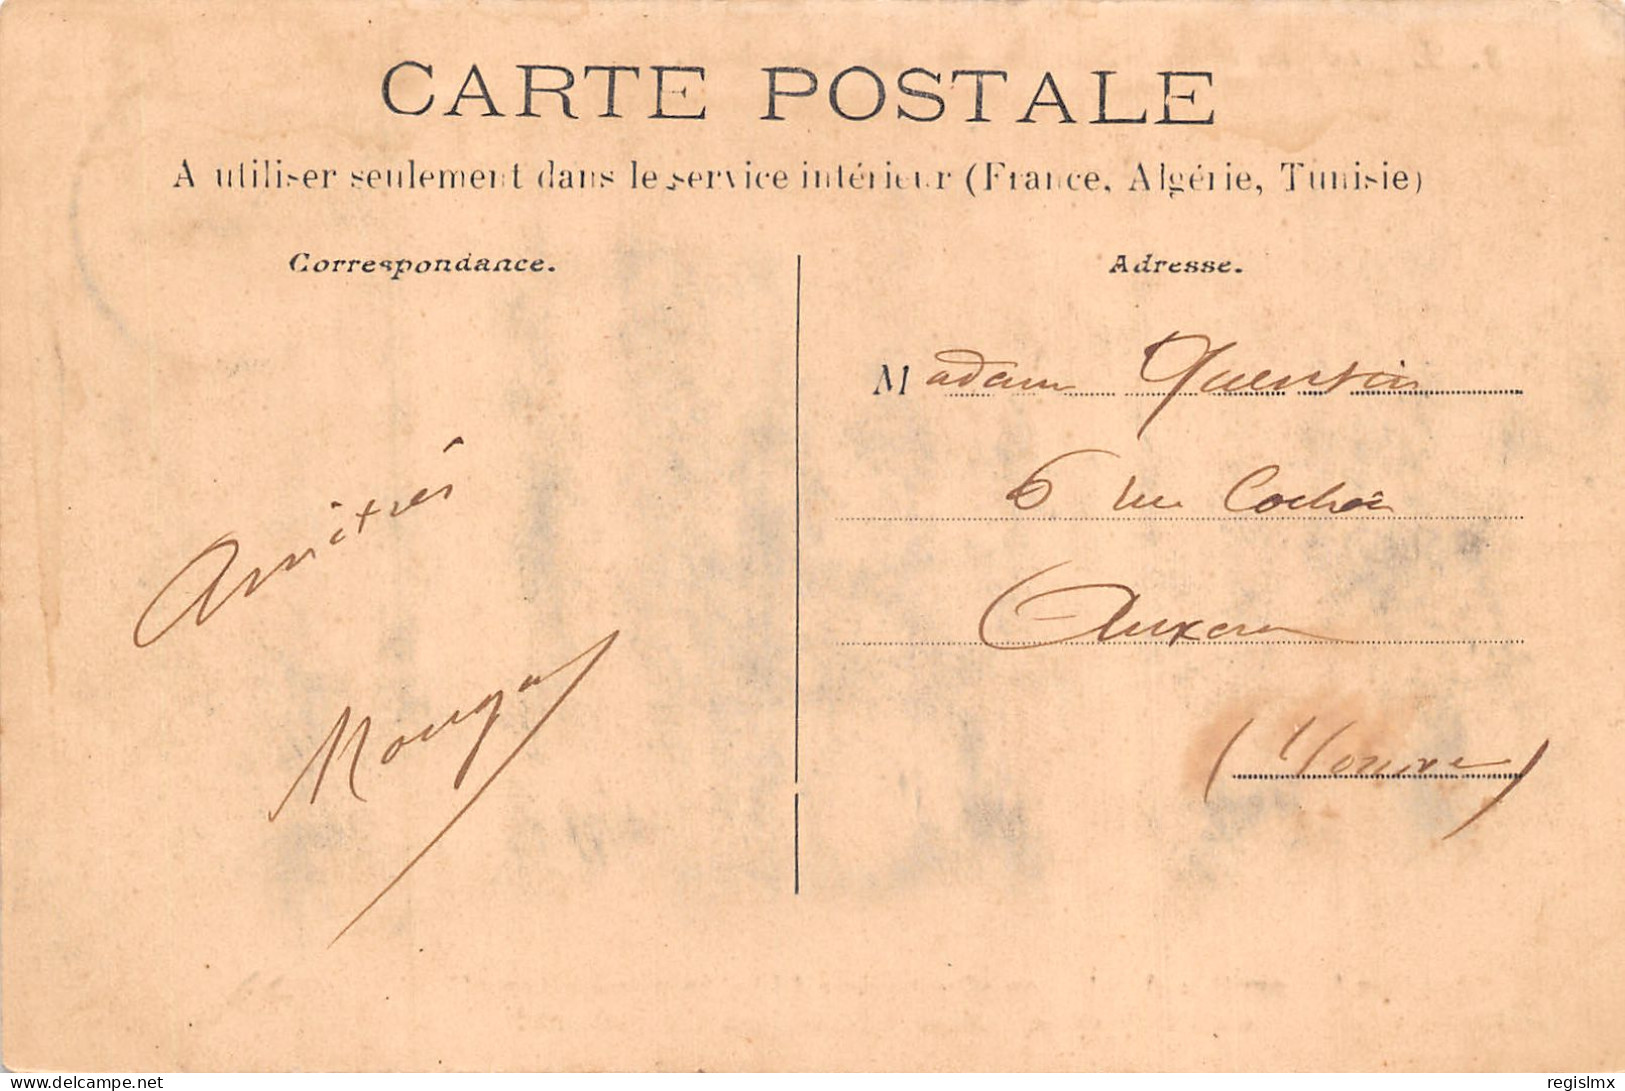 CARTE POSTALE
A utiliser seulement dans le service intérieur (France, Algérie, Tunisie)
Correspondance.
Adresse.
Madame Quentin
6 rue Cochois
Auxerre
(Yonne)
Amitiés
delcampe.net
regislmx